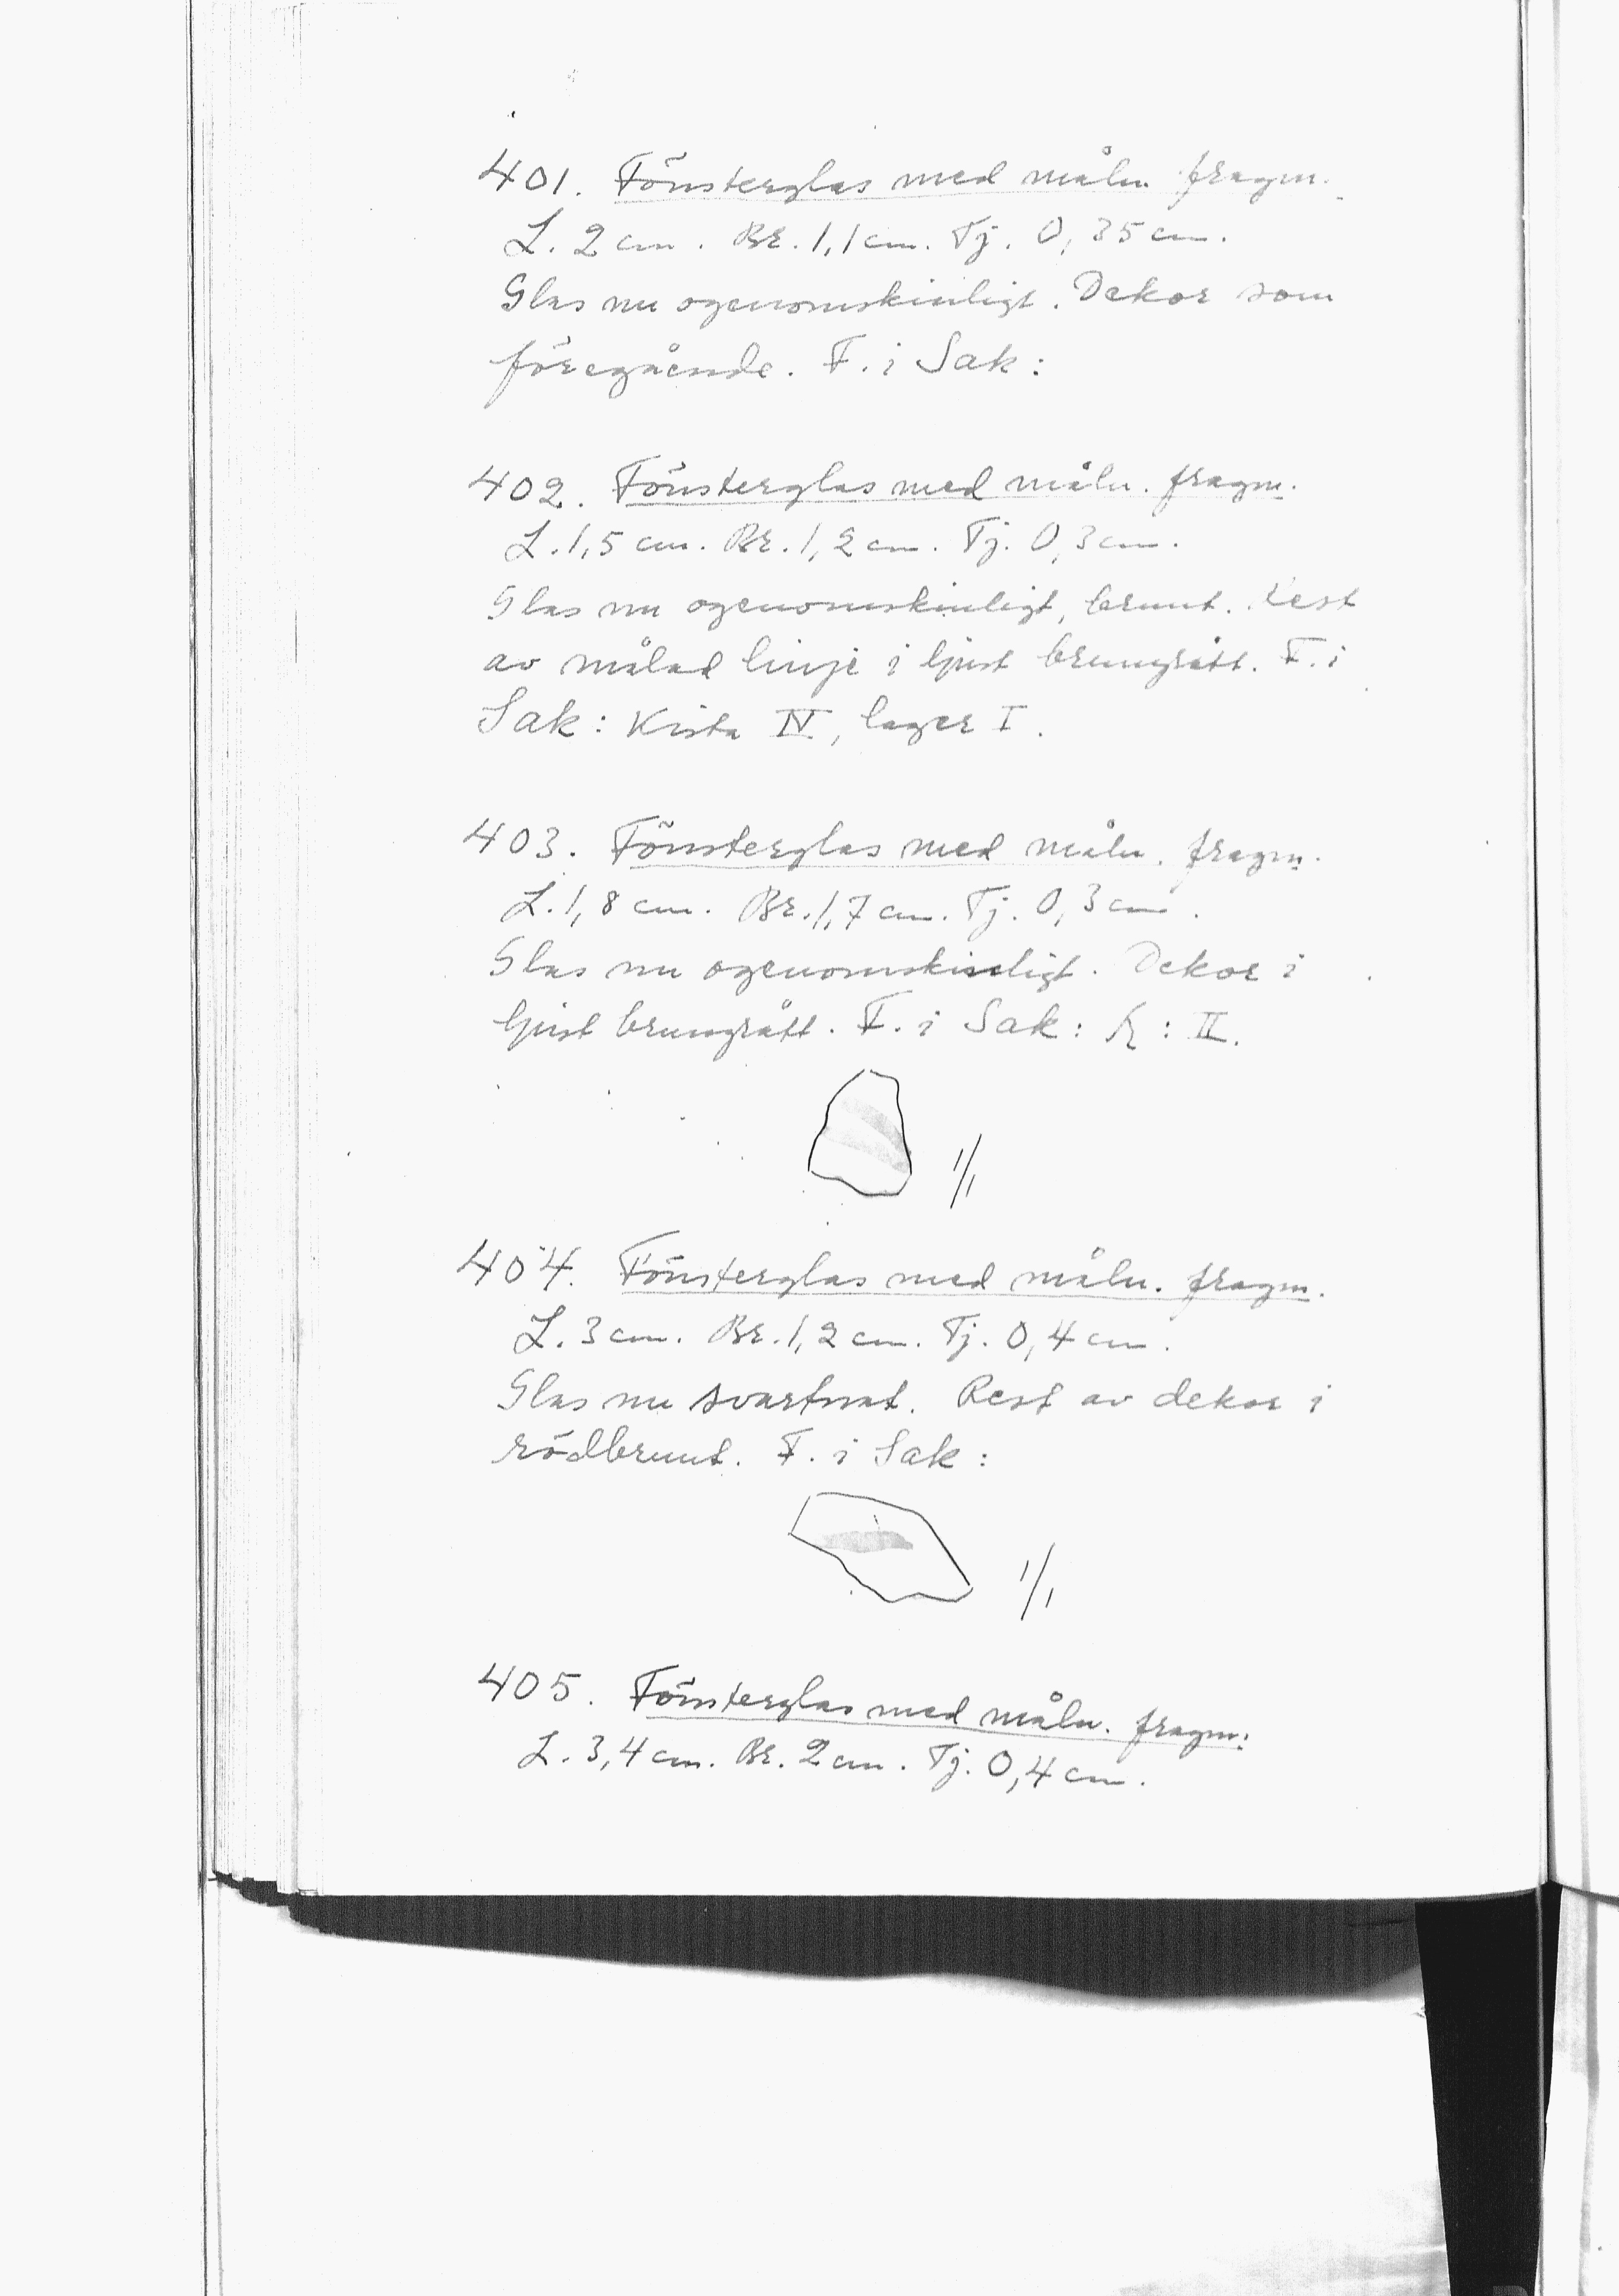 401. Fönsterglas med måln. fragm.
L. 2 cm. Br. 1,1 cm. Tj. 0,35 cm.
Glas nu ogenomskinligt. Dekor som
föregående. F. i Sak:
402. Fönsterglas med måln. fragm.
L. 1,5 cm. Br. 1,2 cm. Tj. 0,3 cm.
Glas nu ogenomskinligt, brunt. Rest
av målad linje i ljust brungrått. F. i
Sak: Kista IV, lager I.
403. Fönsterglas med måln. fragm.
L. 1,8 cm. Br. 1,7 cm. Tj. 0,3 cm.
Glas nu ogenomskinligt. Dekor i
ljust brungrått. F. i Sak: : II.
1/1
404. Fönsterglas med måln. fragm.
L. 3 cm. Br. 1,2 cm. Tj. 0,4 cm.
Glas nu svartnat. Rest av dekor i
rödbrunt. F. i Sak:
1/1
405. Fönsterglas med måln. fragm.
L. 3,4 cm. Br. 2 cm. Tj. 0,4 cm.